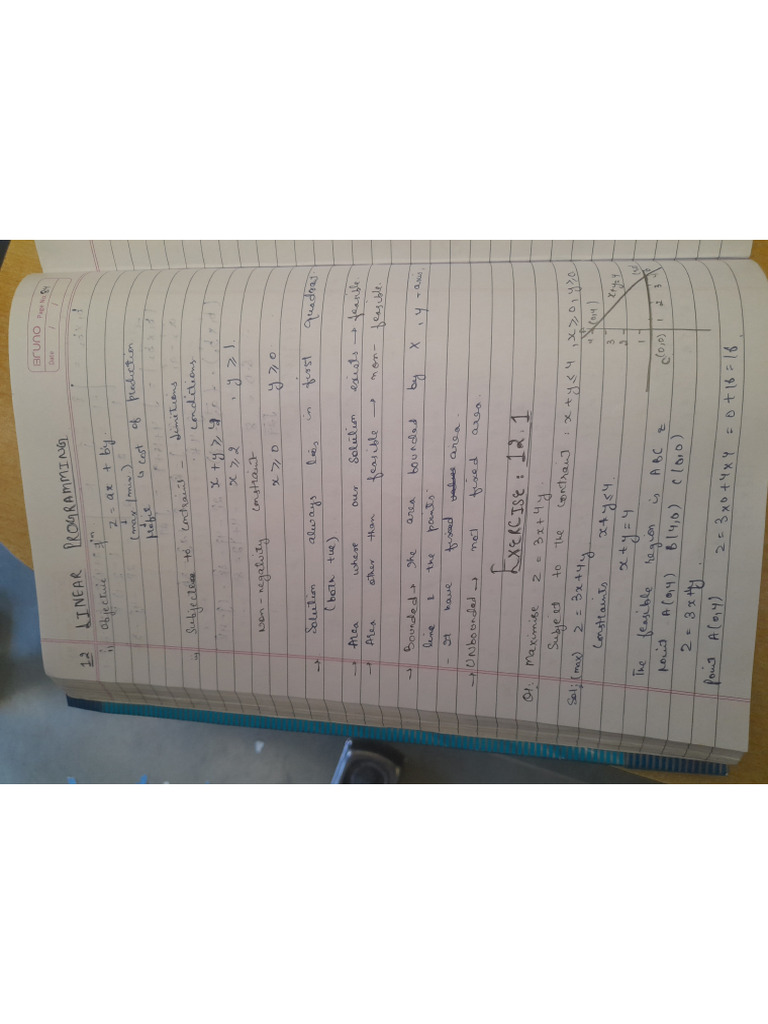 BRUNO
Page No.
Date / /
12 LINEAR PROGRAMMING
i) Objective fn
Z = ax + by.
(max / min)
profit is cost of production
→ Subjective to contraint - limitions
conditions
x + y ≥ 4
x ≥ 2 , y ≥ 1.
non-negativity constraint
x ≥ 0 y ≥ 0
→ Solution always lies in first quadras.
(both +ve)
→ Area where our solution exists → feasible.
→ Area other than feasible → non-feasible.
→ Bounded → the area bounded by X, Y - axis.
line & the points.
- It have fixed area.
→ UNbounded → not fixed area.
EXERCISE: 12.1
Q1. Maximise Z = 3x + 4y.
Subject to the contraint : x + y ≤ 4 , x ≥ 0, y ≥ 0
Sol: (max) Z = 3x + 4y
Constraints x + y ≤ 4.
x + y = 4
The feasible region is ABC
point A(0,4) B(4,0) C(0,0)
Z = 3x + 4y.
point A(0,4) Z = 3x0 + 4x4 = 0 + 16 = 16.
(0,4)
4
3
2
1
C(0,0) 1 2 3